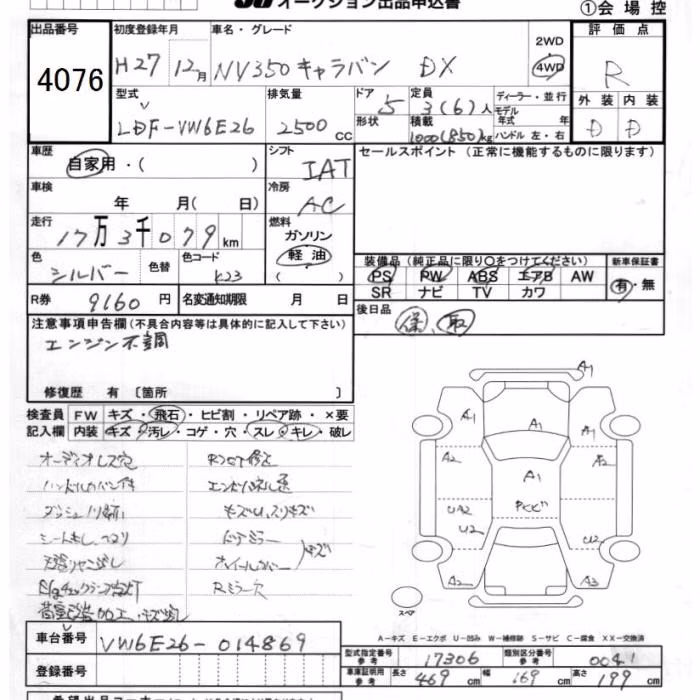 オークション出品申込書
①会 場 控
出品番号 初度登録年月 車名・グレード 評 価 点
4076 H27 12月 NV350キャラバン DX 2WD 4WD R
型式 排気量 ドア 定員 ディーラー・並行 外 装 内 装
LDF-VW6E26 2500 CC 5 3(6)人 モデル年式 年 D D
形状 積載 1000(850)kg ハンドル 左・右
車歴 シフト セールスポイント (正常に機能するものに限ります)
自家用・( ) IAT
車検 冷房
年 月( 日) AC
走行 燃料
17万3千079km ガソリン
色 色替 色コード 軽 油
シルバー K23 ( )
装備品 (純正品に限り○をつけてください) 新車保証書
PS PW ABS エアB AW 有・無
SR ナビ TV カワ
R券 9160 円 名変通知期限 月 日
後日品 保 取
注意事項申告欄(不具合内容等は具体的に記入して下さい)
エンジン不調
修復歴 有 〔箇所 〕
検査員 FW キズ・飛石・ヒビ割・リペア跡・×要
記入欄 内装 キズ・汚レ・コゲ・穴・スレ・キレ・破レ
オーディオレス穴
ハンドルカバー付
キズU、スリキズ
ドアミラー
ホイールカバー キズ
Rミラー穴
A1
A1 A1 A1
A2 A1 A2
UA2 PCビ
U2 U2
A2 A3
スペア
A-キズ E-エクボ U-凹み W-補修跡 S-サビ C-腐食 XX-交換済
車台番号 VW6E26-014869
登録番号
型式指定番号 参考 17306 類別区分番号 参考 0041
車庫証明用 参考 長さ 469 cm 幅 169 cm 高さ 199 cm